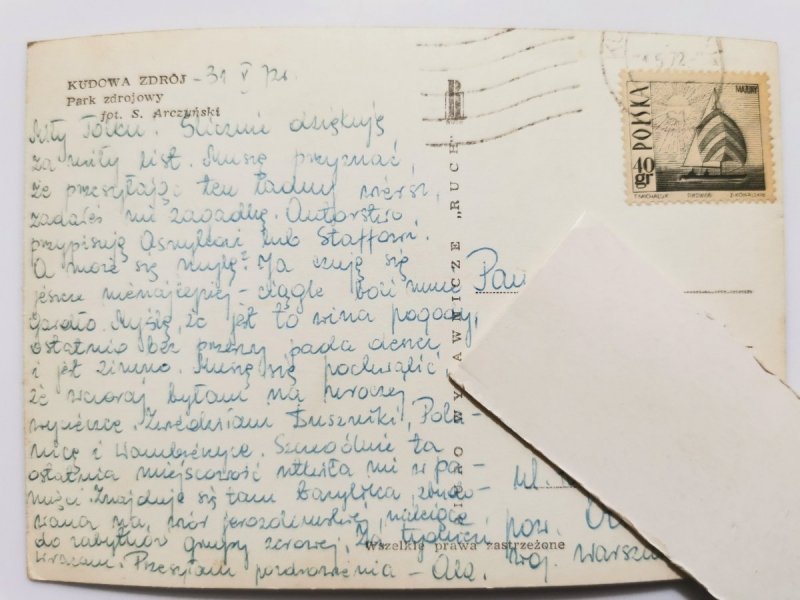 KUDOWA ZDRÓJ - 31 V 72r.
Park zdrojowy
fot. S. Arczyński
Miły Tolku. Ślicznie dziękuję
za miły list. Muszę przyznać,
że przesyłając ten ładny wiersz,
zadałeś mi zagadkę. Autorstwo
przypisuję Asnykowi lub Staffowi.
A może się mylę? Ja czuję się
jeszcze nienajlepiej - ciągle boli mnie
gardło. Myślę, że jest to wina pogody,
ostatnio bez przerwy pada deszcz
i jest zimno. Muszę się pochwalić,
że wczoraj byłam na uroczej
wycieczce. Zwiedziłam Duszniki, Pola-
nicę i Wambierzyce. Szczególnie ta
ostatnia miejscowość utkwiła mi w pa-
mięci. Znajduje się tam bazylika, zbudo-
wana na wzór jerozolimskiej, należąca
do zabytków grupy zerowej. Za tydzień
wracam. Przesyłam pozdrowienia - Ala.
WYDAWNICZE „RUCH"
Wszelkie prawa zastrzeżone
POLSKA
40 gr
ul.
pow.
woj. Warsza